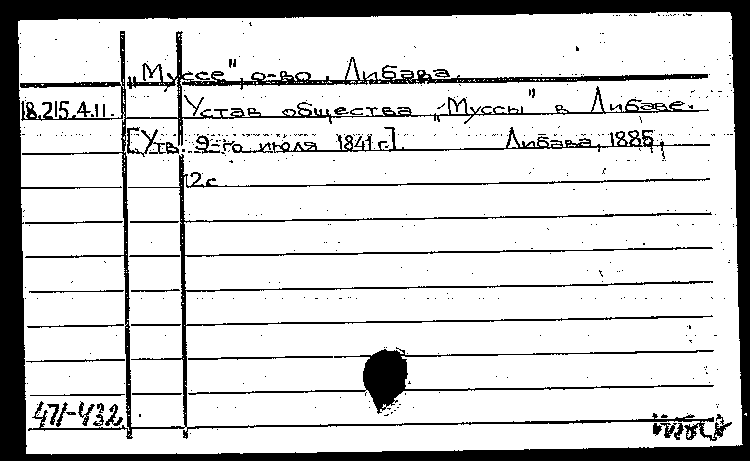 „Муссе", о-во. Либава.
18.215.4.11. Устав общества „Муссы" в Либаве.
[Утв. 9-го июля 1841 г.]. Либава, 1885,
12 с.
471-432